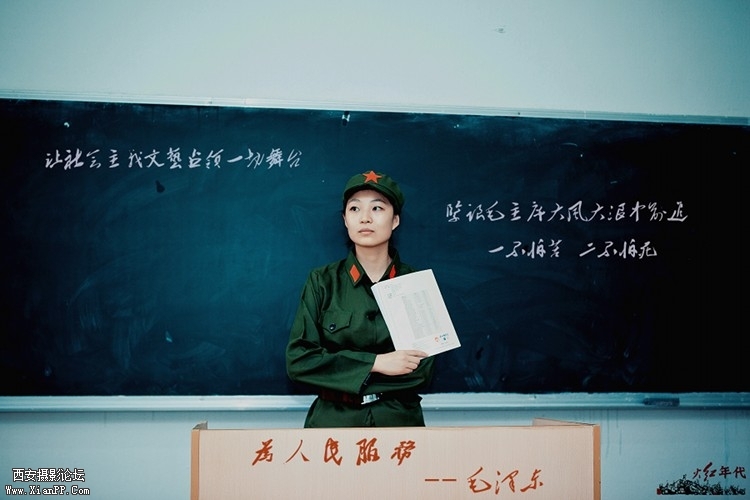 让社会主义文艺占领一切舞台
跟毛主席大风大浪中前进
一不怕苦 二不怕死
为人民服务
——毛泽东
火红年代
西安摄影论坛
www.XianPP.Com